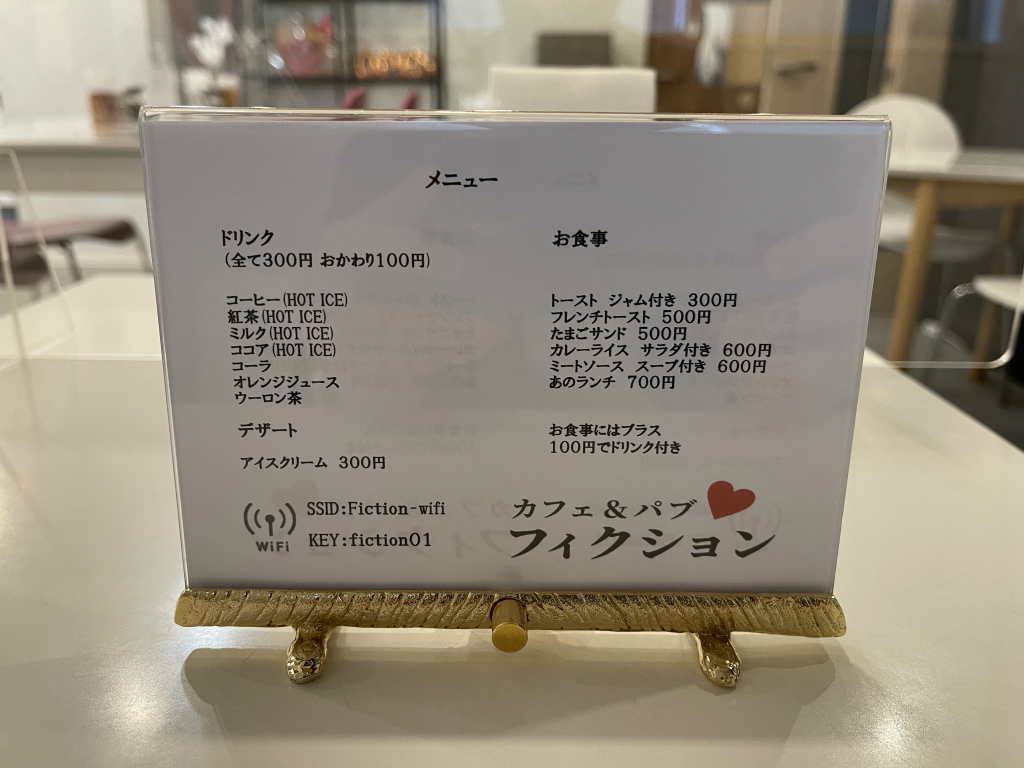 メニュー
ドリンク
(全て300円 おかわり100円)
コーヒー(HOT ICE)
紅茶(HOT ICE)
ミルク(HOT ICE)
ココア(HOT ICE)
コーラ
オレンジジュース
ウーロン茶
デザート
アイスクリーム 300円
お食事
トースト ジャム付き 300円
フレンチトースト 500円
たまごサンド 500円
カレーライス サラダ付き 600円
ミートソース スープ付き 600円
あのランチ 700円
お食事にはプラス
100円でドリンク付き
WiFi
SSID:Fiction-wifi
KEY:fiction01
カフェ&パブ
フィクション